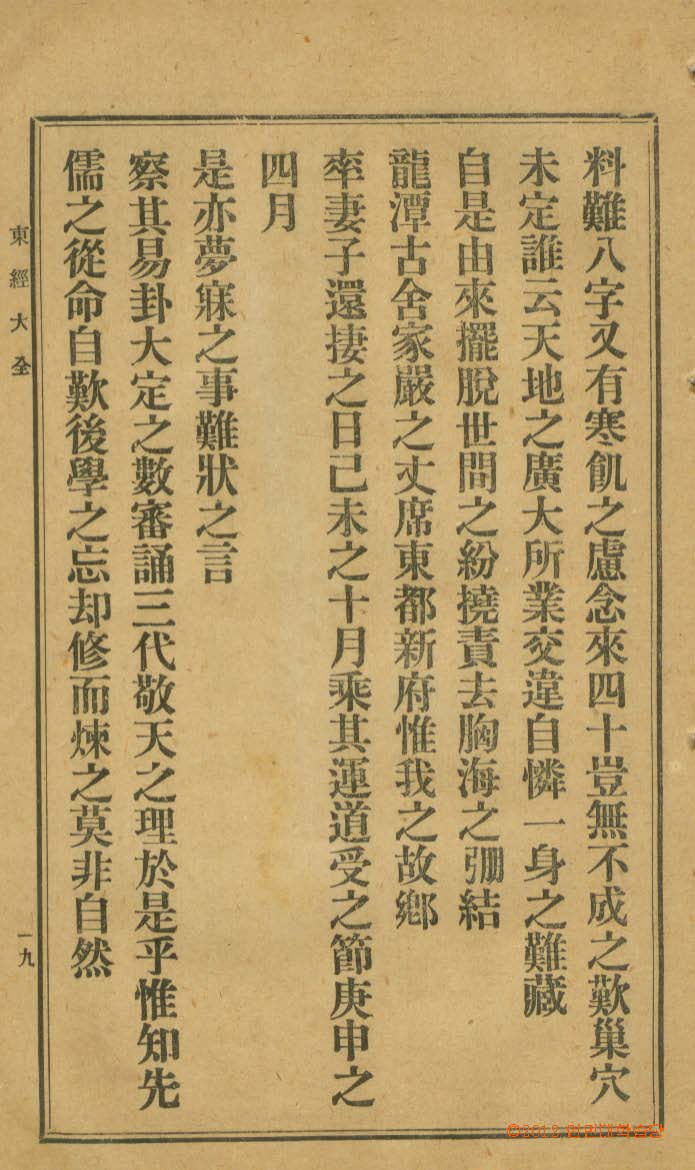 料難八字又有寒飢之慮念來四十豈無不成之歎巢穴
未定誰云天地之廣大所業交違自憐一身之難藏
自是由來擺脫世間之紛撓責去胸海之弸結
龍潭古舍家嚴之丈席東都新府惟我之故鄉
率妻子還捿之日己未之十月乘其運道受之節庚申之
四月
是亦夢寐之事難狀之言
察其易卦大定之數審誦三代敬天之理於是乎惟知先
儒之從命自歎後學之忘却修而煉之莫非自然
東經大全
一九
©2012